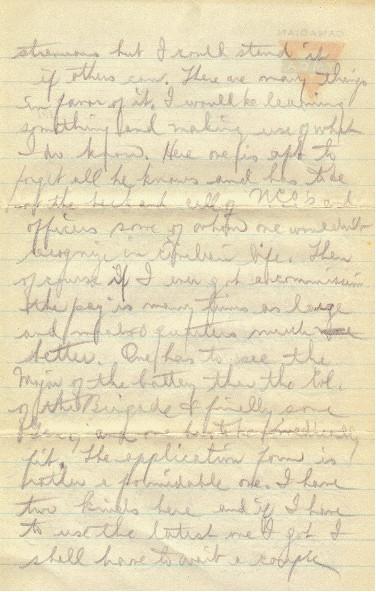 CANADIAN
strenuous but I could stand it
if others can. There are many things
in favor of it, I would be learning
something and making use of what
I do know. Here one is apt to
forget all he knows and has to be
at the beck and call of N.C.O's and
officers some of whom one wouldn't
recognize in civilian life. Then
of course if I ever got a commission
the pay is many times as large
and quarters much
better. One has to see the
Major of the battery then the Col.
of the Brigade & finally some
and one has to be medically
fit. The application form is
rather a formidable one. I have
two kinds here and if I have
to use the latest one I got I
shall have to wait a couple